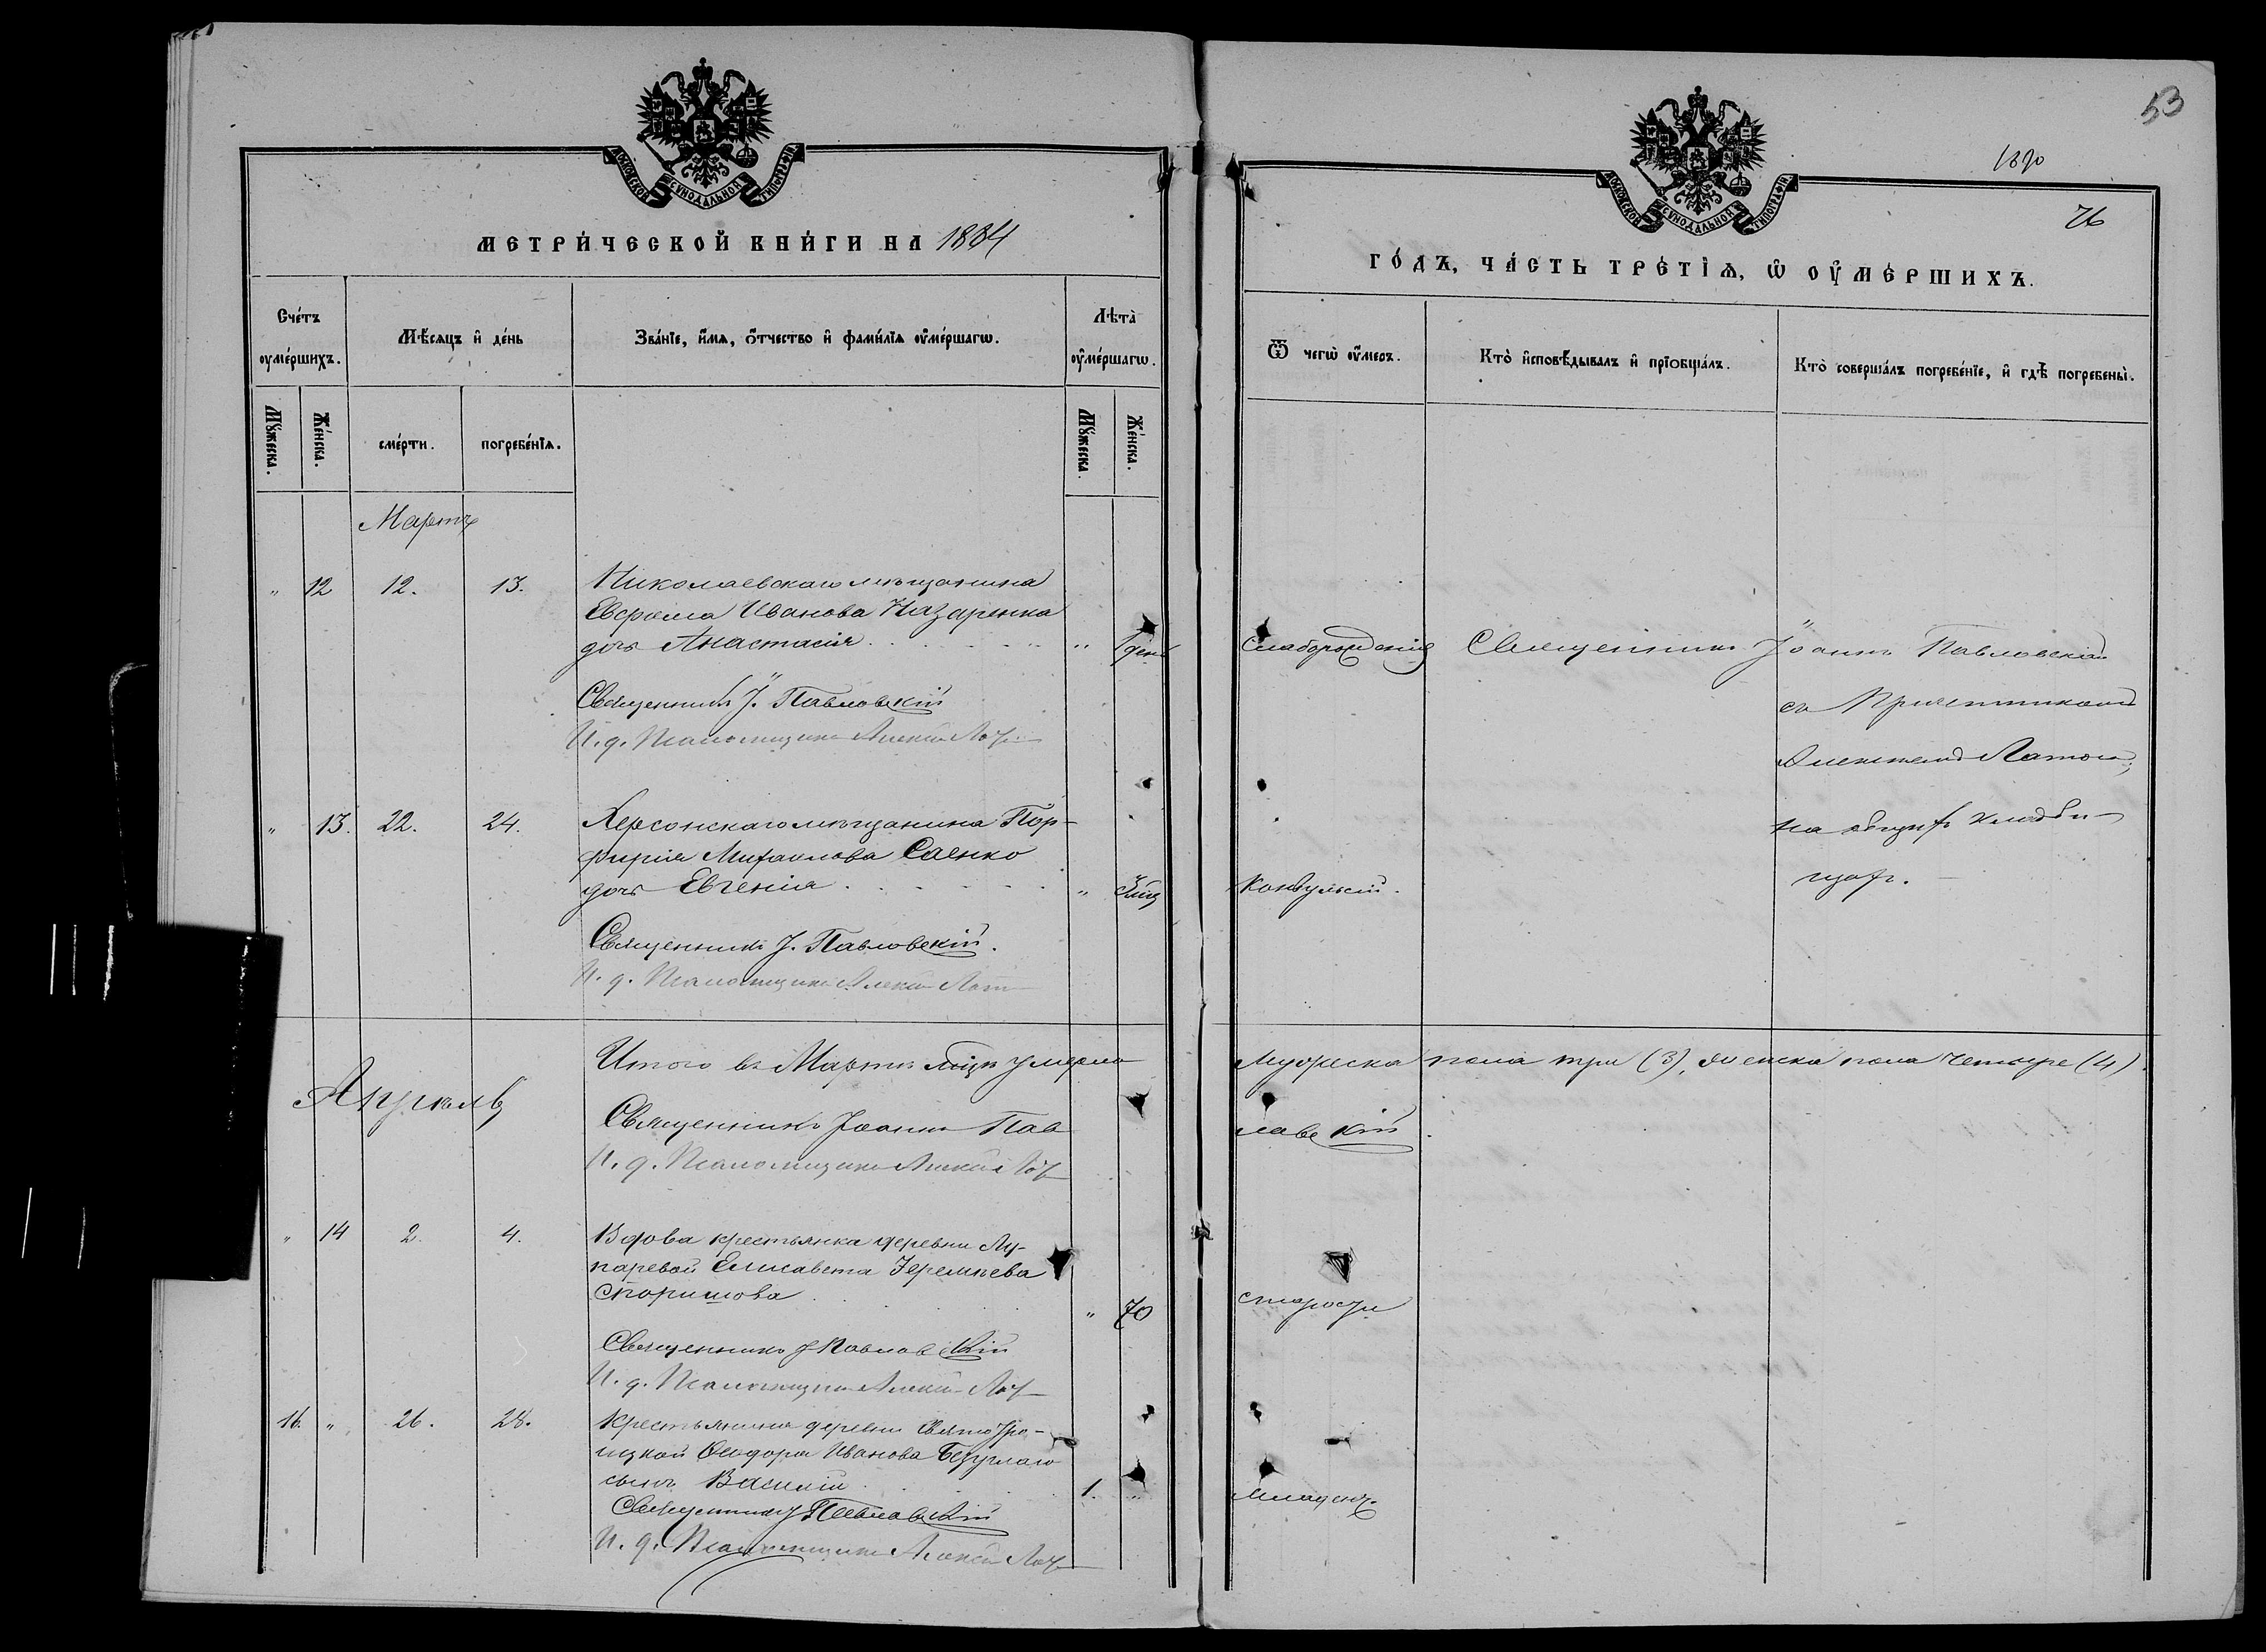 МОСКОВСКОЙ СѴНОДАЛЬНОЙ ТИПОГРАФІИ
МЕТРИ́ЧЕСКОЙ КНИ́ГИ НА 1884
Сче́тъ ᲂумє́ршихъ.
Мѣ́сяцъ и де́нь
Зва́нїе, и́мя, ѻ́тчество и фами́лїя ᲂуме́ршагѡ.
Лѣта̀ ᲂуме́ршагѡ.
Му́жеска.
Же́нска.
сме́рти.
погребе́нїя.
Му́жеска.
Же́нска.
Мартъ
" 12 12. 13. Николаевскаго мѣщанина
Ефрема Иванова Назаренка
дочь Анастасія " 1 ден
Священникъ І. Павловскій
И. д. Псаломщика Алексій
" 13. 22. 24. Херсонскаго мѣщанина Пор-
фирія Михаилова Саенко
дочь Евгенія " 3 мц
Священникъ І. Павловскій.
И. д. Псаломщика Алексій
Итого въ Мартѣ мцѣ умерло
Апрель
Священникъ Іоаннъ Пав
И. д. Псаломщика Алексій
" 14 2. 4. Вдова крестьянка деревни Лу-
паревой Елисавета Іеремѣева
" 70
Священникъ І Павловскій
И. д. Псаломщика Алексій
16. " 26. 28. Крестьянина деревни Святотро-
ицкой Ѳеодора Иванова Безуглаго
сынъ Василій 1. "
Священникъ І Павловскій
И. д. Псаломщика Алексій
53
1890
76
МОСКОВСКОЙ СѴНОДАЛЬНОЙ ТИПОГРАФІИ
ГО́ДЪ, ЧА́СТЬ ТРЕ́ТІѦ, Ѡ ОУ҆МЕ́РШИХЪ.
Ѿ чегѡ̀ ᲂу́меръ.
Кто̀ исповѣ́дывалъ и прїобща́лъ.
Кто̀ соверша́лъ погребе́нїе, и гдѣ̀ погребены̀.
Слаборожденія Священникъ Іоаннъ Павловскій
съ Причетникомъ
на общемъ кладби-
щѣ.
Конвульсій.
Мужеска пола три (3), женска пола четыре (4).
ловскій.
старости
младенч.